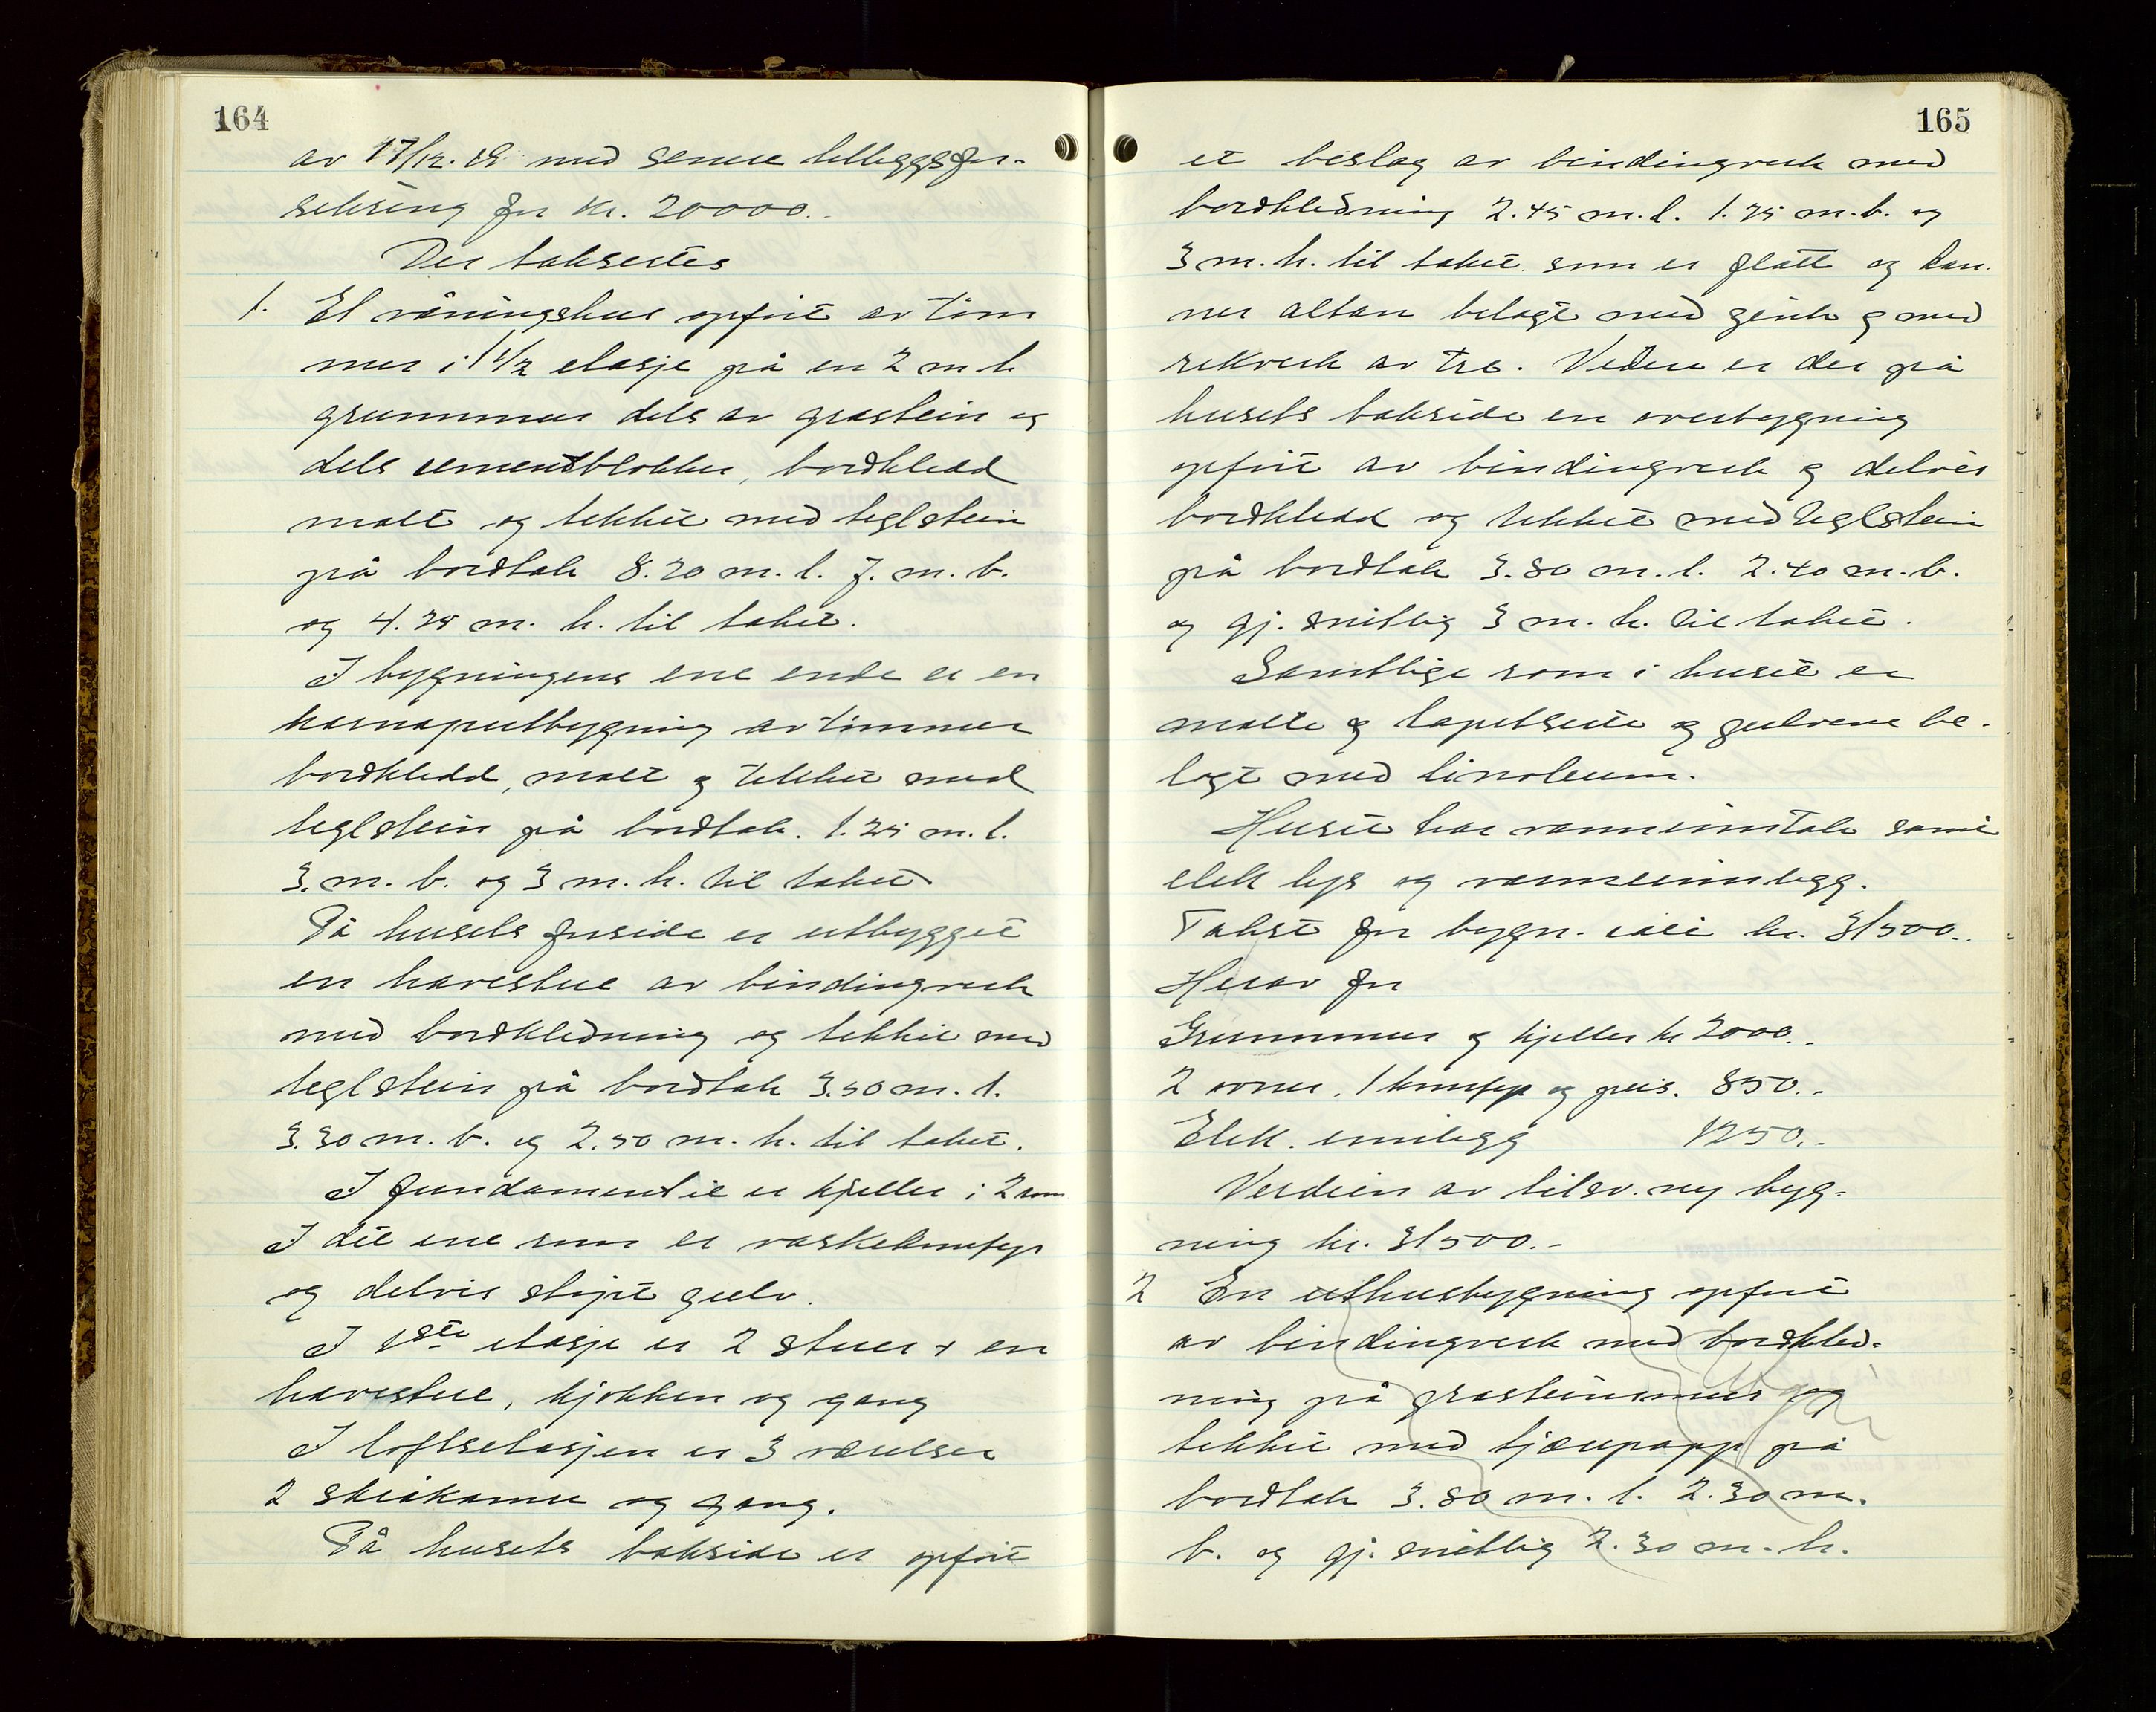 164
av 17/12. 19 med senere tilleggsfor-
sikring for kr. 20000..
Der taksertes
1. Et våningshus opført av tøm
mer i 1 1/2 etasje på en 2 m h
grunnmur dels av gråstein og
dels sementblokker, bordkledd
malt og tekket med teglstein
på bordtak 8.20 m. l. 7. m. b.
og 4.25 m. h. til taket.
I bygningens ene ende er en
karnaputbygning av tømmer
bordkledd, malt og tekket med
teglstein på bordtak. 1.25 m. l.
3. m. b. og 3 m. h. til taket
På husets forside er utbygget
en havestue av bindingverk
med bordkledning og tekket med
teglstein på bordtak 3.50 m. l.
3.30 m. b. og 2.50 m. h. til taket.
I fundamentet er kjeller i 2 rom
I det ene rom er vaskekomfyr
og delvis støpt gulv.
I 1ste etasje er 2 stuer + en
havestue, kjøkken og gang
I loftsetasjen er 3 værelser
2 skråkamre og gang.
På husets bakside er opført
165
et beslag av bindingverk med
bordkledning 2.45 m. l. 1.75 m. b. og
3 m. h. til taket som er flatt og dan-
ner altan belagt med zink og med
rekverk av tre. Videre er der på
husets bakside en overbygning
opført av bindingverk og delvis
bordkledd og tekket med teglstein
på bordtak 3.80 m. l. 2.40 m. b.
og gj. snittlig 3 m. h. til taket.
Samtlige rom i huset er
malte og tapetserte og gulvene be-
lagt med linoleum.
Huset har vanninntak samt
elek lys og varmeinnlegg.
Takst for bygn. i alt kr. 31500..
Herav for
Grunnmur og kjeller kr 2000..
2 ovner, 1 komfyr og peis. 850..
Elek. innlegg 1250..
Verdien av tilsv. ny byg-
ning kr. 31500.-
2 En uthusbygning opført
av bindingverk med bordkled-
ning på gråsteinsmur og
tekket med tjærepapp på
bordtak 3.80 m. l. 2.30 m.
b. og gj. snittlig 2.30 m. h.